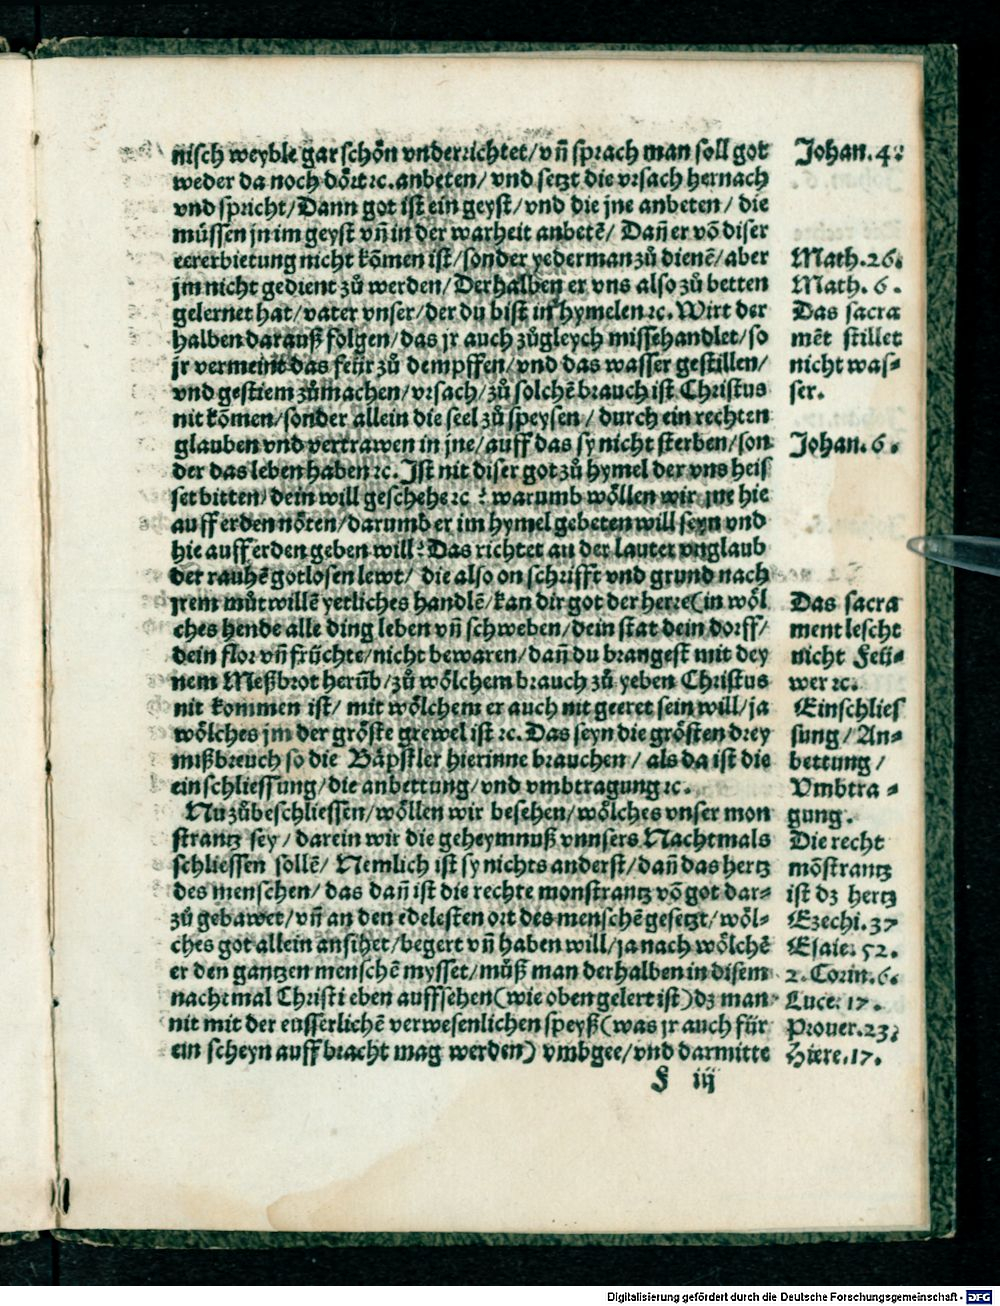 nisch weyble gar schön vnderrichtet/ vn̄ sprach man soll got
weder da noch dört ꝛc. anbeten/ vnd setzt die vrsach hernach
vnd spricht/ Dann got ist ein geyst/ vnd die jne anbeten/ die
müssen jn im geyst vn̄ in der warheit anbetē/ Dañ er võ diser
eererbietung nicht kõmen ist/ sonder yederman zů dienē/ aber
jm nicht gedient zů werden/ Derhalben er vns also zů betten
gelernet hat/ vater vnser/ der du bist in hymelen ꝛc. Wirt der
halben darauß folgen/ das jr auch zůgleych missehandlet/ so
jr vermeint das feür zů dempffen/ vnd das wasser gestillen/
vnd gestiem zůmachen/ vrsach/ zů solchē brauch ist Christus
nit kõmen/ sonder allein die seel zů speysen/ durch ein rechten
glauben vnd vertrawen in jne/ auff das sy nicht sterben/ son
der das leben haben ꝛc. Ist nit diser got zů hymel der vns heis
set bitten/ dein will geschehe ꝛc? warumb wöllen wir jne hie
auff erden nöten/ darumb er im hymel gebeten will seyn vnd
hie auff erden geben will? Das richtet an der lauter vnglaub
der rauhē gotlosen lewt/ die also on schrifft vnd grund nach
jrem můtwillē yetliches handlē/ kan dir got der herre (in wöl
ches hende alle ding leben vn̄ schweben/ dein stat dein dorff/
dein flor vn̄ früchte/ nicht bewaren/ dañ du brangest mit dey
nem Meßbrot herüb/ zů wölchem brauch zů yeben Christus
nit kommen ist/ mit wölchem er auch nit geeret sein will/ ja
wölches jm der gröste grewel ist ꝛc. Das seyn die grösten drey
mißbreuch so die Bäpstler hierinne brauchen/ als da ist die
einschliessung/ die anbettung/ vnd vmbtragung ꝛc.
Nu zůbeschliessen/ wöllen wir besehen/ wölches vnser mon
strantz sey/ darein wir die geheymnuß vnnsers Nachtmals
schliessen sollē/ Nemlich ist sy nichts anderst/ dañ das hertz
des menschen/ das dañ ist die rechte monstrantz võ got dar⸗
zů gebawet/ vn̄ an den edelesten ort des menschē gesetzt/ wöl⸗
ches got allein ansihet/ begert vn̄ haben will/ ja nach wölchē
er den gantzen menschē mysset/ můß man derhalben in disem
nachtmal Christi eben auffsehen (wie oben gelert ist) dz man
nit mit der eusserlichē verwesenlichen speyß (was jr auch für
ein scheyn auffbracht mag werden) vmbgee/ vnd darmitte
F iij
Johan. 4.
Math. 26.
Math. 6.
Das sacra
mēt stillet
nicht was⸗
ser.
Johan. 6.
Das sacra
ment lescht
nicht Feü⸗
wer ꝛc.
Einschlies
sung/ An⸗
bettung/
Vmbtra⸗
gung.
Die recht
mõstrantz
ist dz hertz
Ezechi. 37
Esaie. 52.
2. Corin. 6.
Luce. 17.
Prouer. 23.
Hiere. 17.
Digitalisierung gefördert durch die Deutsche Forschungsgemeinschaft - DFG